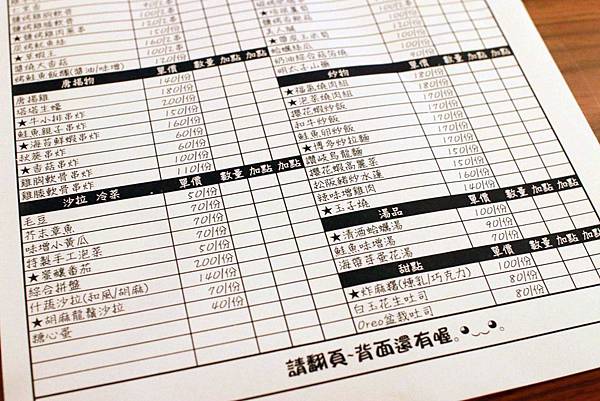 鹽烤雞胸軟骨
★鹽烤雞肉蔥串
炭烤魷魚絲 160/1本
★草蝦王 150/1本
醬燒大香菇 120/份
烤鮭魚飯糰(醬油/味增)
唐揚物 單價 數量 加點 加點
唐揚雞 140/份
塔塔生蠔 180/份
★牛小排串炸 200/份
鮭魚親子串炸 150/份
★海苔鮮蝦串炸 160/份
秋葵串炸 60/份
★香菇串炸 60/份
雞胸軟骨串炸 100/份
雞膝軟骨串炸 110/份
沙拉 冷菜 單價 數量 加點 加點
毛豆 50/份
芥末章魚 70/份
味增小黃瓜 70/份
特製手工泡菜 70/份
★蜜釀番茄 50/份
綜合拼盤 200/份
什蔬沙拉(和風/胡麻) 140/份
★胡麻龍鬚沙拉 70/份
溏心蛋 40/份
蛤蠣絲瓜
奶油綜合菇筍燒 90/份
明太子山藥
炒物 單價 數量 加點 加點
★福氣燒肉組 180/份
★泡菜燒肉組 180/份
櫻花蝦炒飯 170/份
和牛炒飯 170/份
鮭魚卵炒飯 170/份
★博多炒拉麵 170/份
讚岐烏龍麵 170/份
櫻花蝦高麗菜 150/份
松阪豬炒水蓮 150/份
辣味雞肉 160/份
★玉子燒 140/份
湯品 單價 數量 加點 加點
★清酒蛤蠣湯 100/份
鮭魚味增湯 90/份
海帶芽蛋花湯 70/份
甜點 單價 數量 加點 加點
★炸麻糬(煉乳/巧克力) 100/份
白玉花生吐司 80/份
Oreo盆栽吐司 80/份
請翻頁~背面還有喔。